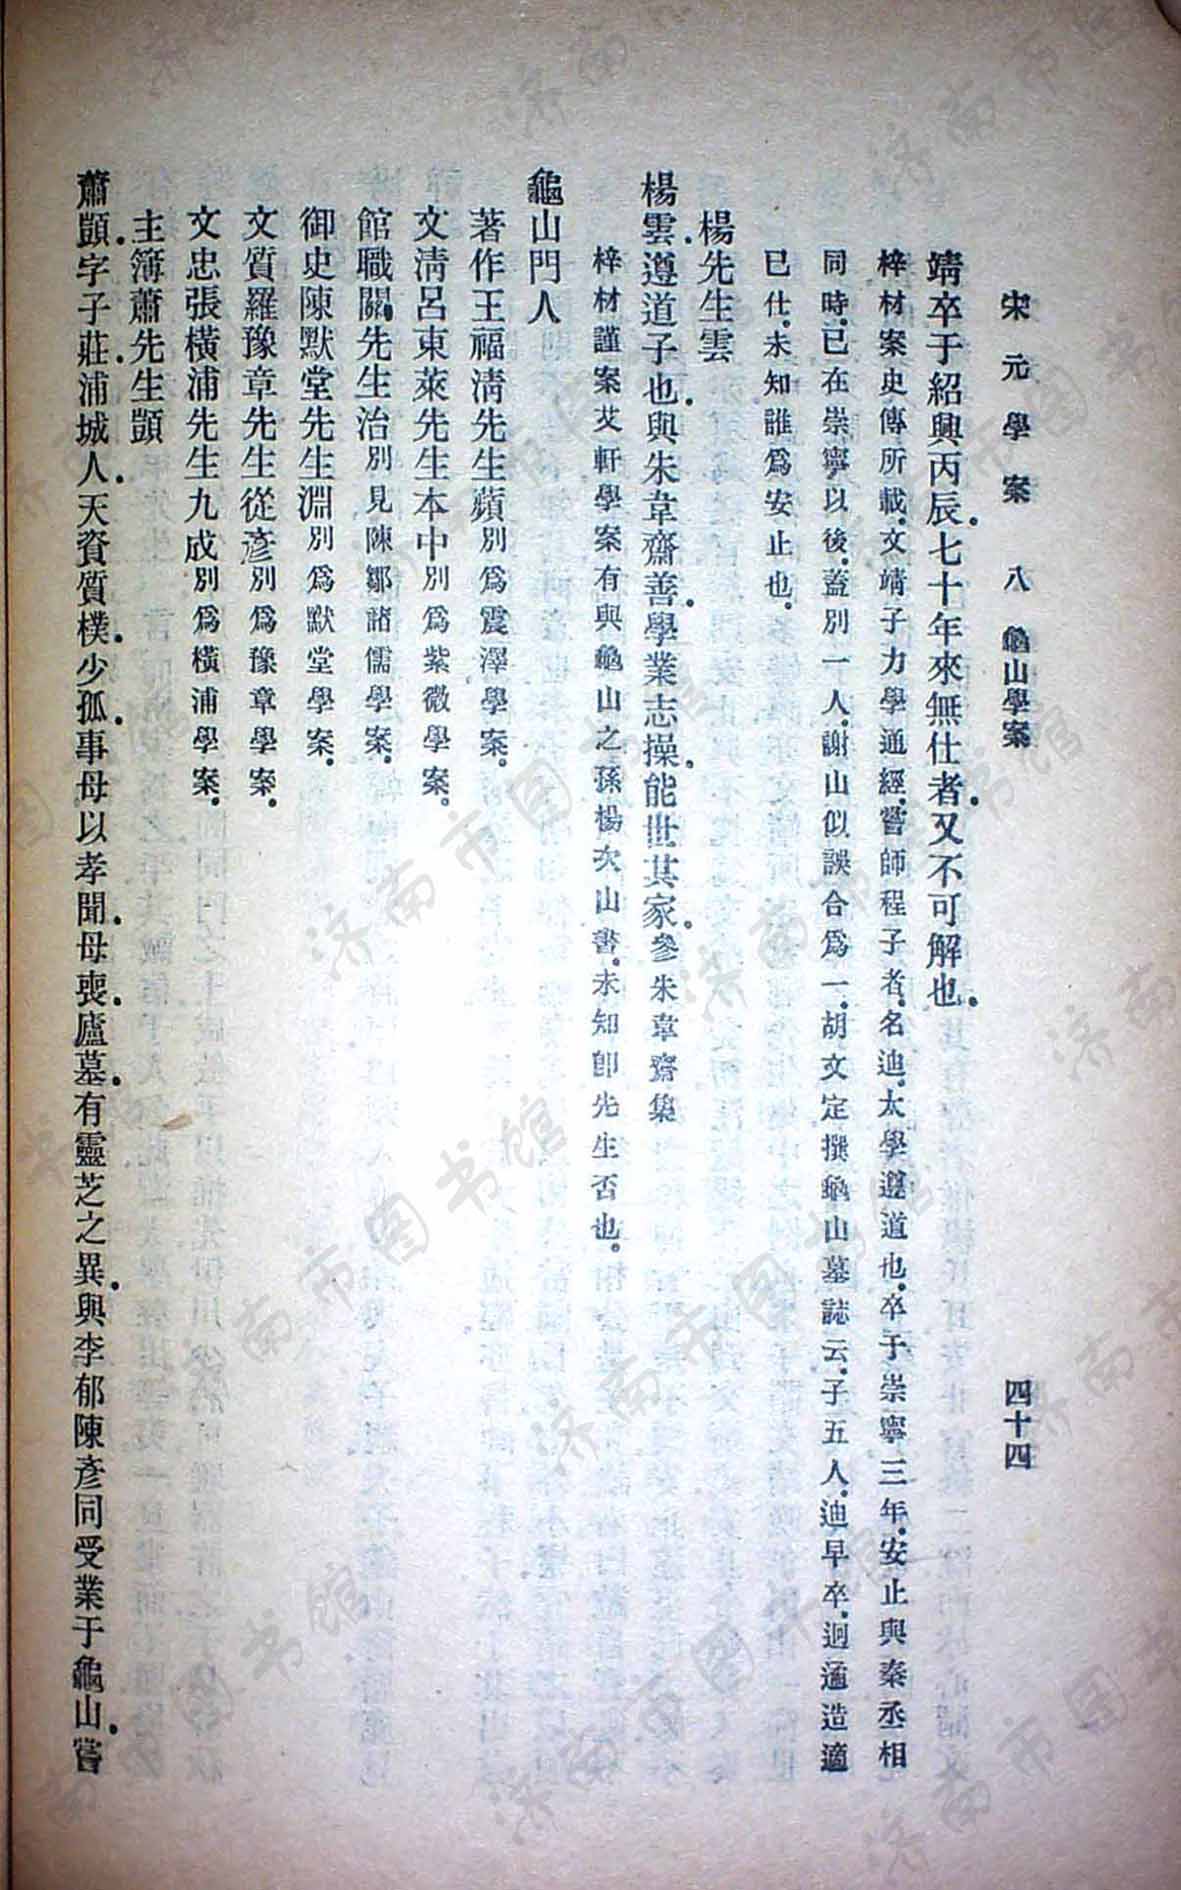 宋元學案 八 龜山學案 四十四
靖卒于紹興丙辰．七十年來無仕者．又不可解也．
梓材案史傳所載．文靖子力學通經．嘗師程子者．名迪．太學遵道也．卒于崇寧三年．安止與秦丞相
同時．已在崇寧以後．蓋別一人．謝山似誤合爲一．胡文定撰龜山墓誌云．子五人．迪早卒．迥遹造適
已仕．未知誰爲安止也．
楊先生雲
楊雲．遵道子也．與朱韋齋善．學業志操．能世其家．參朱韋齋集
梓材謹案艾軒學案有與龜山之孫楊次山書．未知卽先生否也．
龜山門人
著作王福清先生蘋別爲震澤學案．
文清呂東萊先生本中別爲紫微學案．
館職關先生治別見陳鄒諸儒學案．
御史陳默堂先生淵別爲默堂學案．
文質羅豫章先生從彥別爲豫章學案．
文忠張橫浦先生九成別爲橫浦學案．
主簿蕭先生顗
蕭顗．字子莊．浦城人．天資質樸．少孤．事母以孝聞．母喪．廬墓．有靈芝之異．與李郁陳彥同受業于龜山．嘗
济南市图书馆